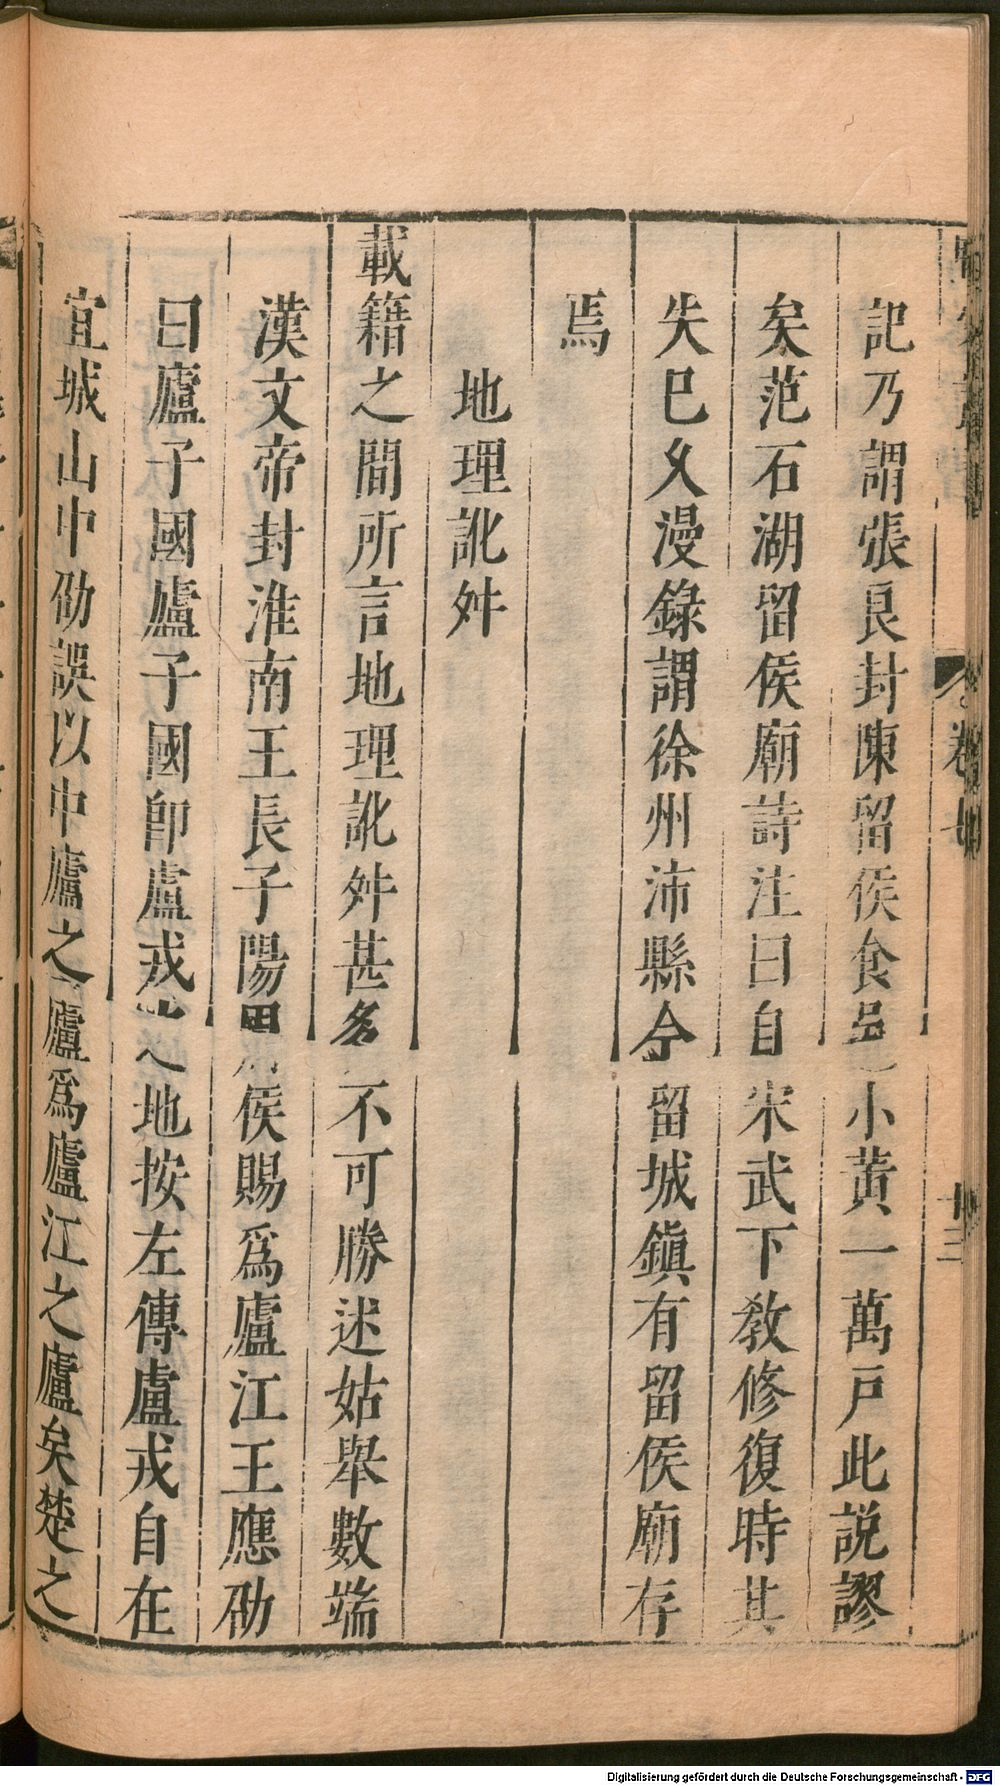 記乃謂張良封陳留侯食邑小黃一萬戸此説謬
矣范石湖留侯廟詩注曰自宋武下敎修復時其
失已久漫錄謂徐州沛縣今留城鎭有留侯廟存
焉
地理訛舛
載籍之間所言地理訛舛甚多不可勝述姑舉數端
漢文帝封淮南王長子陽周侯賜爲廬江王應劭
曰廬子國廬子國卽盧戎之地按左傳盧戎自在
宜城山中劭誤以中廬之廬爲廬江之廬矣楚之
卷七
十三
Digitalisierung gefördert durch die Deutsche Forschungsgemeinschaft - DFG